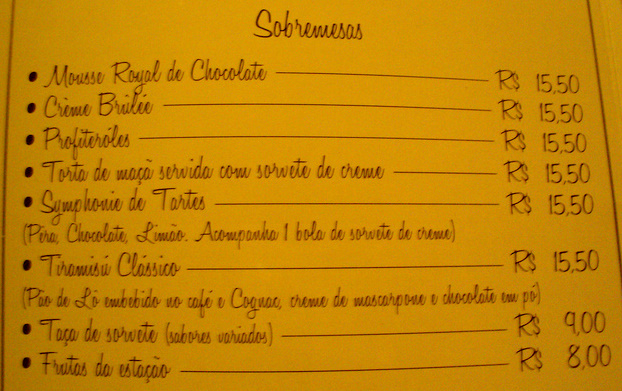 Sobremesas
• Mousse Royal de Chocolate R$ 15,50
• Crème Brûlée R$ 15,50
• Profiteróles R$ 15,50
• Torta de maçã servida com sorvete de creme R$ 15,50
• Symphonie de Tartes R$ 15,50
(Pêra, Chocolate, Limão. Acompanha 1 bola de sorvete de creme)
• Tiramisú Clássico R$ 15,50
(Pão de Ló embebido no café e Cognac, creme de mascarpone e chocolate em pó)
• Taça de sorvete (sabores variados) R$ 9,00
• Frutas da estação R$ 8,00